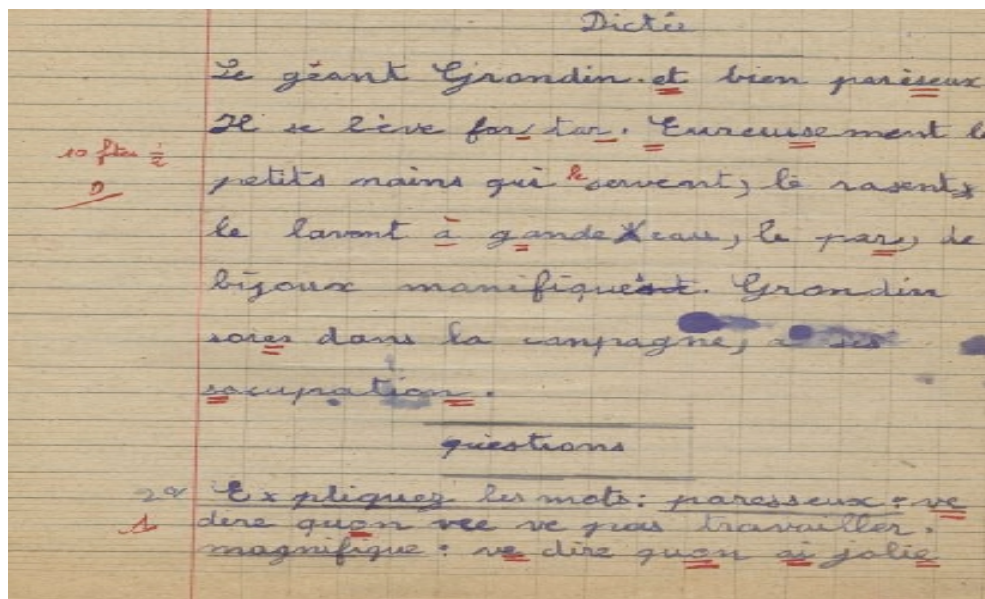 Dictée
Le géant Grondin et bien pariseux
Il se lève for tar. Eureusement le
10 ftes ½
petits nains qui le servent, le rasent,
0
le lavent à gande eau, le par, de
bijoux manifique. Grondin
sores dans la canpagne, a ses
socupation.
questions
2q Expliquez les mots: paresseux: ve
1
dire quon vee ve pas travailler.
magnifique: ve dire quon ai jolie